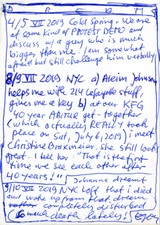 4/5 VII 2019 Cold Spring. We are
at some kind of PROTEST DEMO and
discuss w/ a guy who is much
bigger than me. I am somewhat
afraid but still challenge him verbally
8/9 VII 2019 NYC a)
helps me with 214 Lafayette stuff,
gives me a key b) at our KFG
40 year ABITUR get-together
(which actually REALLY took
place on Sat, July 6, 2019) I meet
Christine. She still looks
great. I tell her "That is the first
time we see each other after
40 years!!" Johanna dreamt
9/10 VII 2019 NYC Loft that I died
and woke up from that dream
completely disturbed
(so much death lately!)